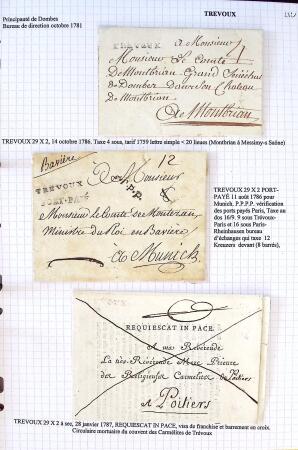 Principauté de Dombes
Bureau de direction octobre 1781
TREVOUX
TREVOUX
A Monsieur
Monsieur Le Comte
De Montbrian Grand Sénéchal
de Dombes Château
de Montbrian
A Montbrian
TREVOUX 29 X 2, 14 octobre 1786. Taxe 4 sous, tarif 1759 lettre simple < 20 lieues (Montbrian à Messimy s/Saône)
Bavière
12
TREVOUX
PORT-PAYÉ
A Monsieur
P.P.P.
Monsieur Le Comte de Montezan
Ministre du Roi en Bavière
A Munich
TREVOUX 29 X 2 PORT-
PAYÉ 11 août 1786 pour
Munich, P.P.P.P. vérification
des ports payés Paris, Taxe au
dos 16/9. 9 sous Trévoux-
Paris et 16 sous Paris-
Rheinhausen bureau
d'échanges qui taxe 12
Kreuzers devant (8 barrés),
REQUIESCAT IN PACE.
A ma Révérende
La très-Révérende Mere Prieure
des Religieuses Carmelites de Poitiers
A Poitiers
TREVOUX 29 X 2 à sec, 28 janvier 1787, REQUIESCAT IN PACE, visa de franchise et barrement en croix.
Circulaire mortuaire du couvent des Carmélites de Trévoux